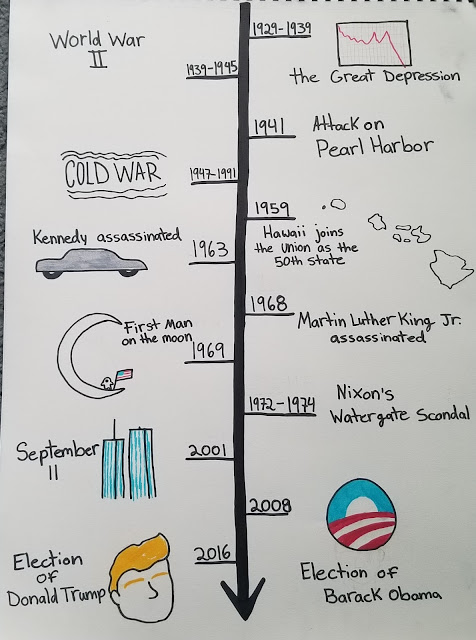 1929-1939
the Great Depression
World War
II
1939-1945
1941
Attack on
Pearl Harbor
COLD WAR
1947-1991
1959
Hawaii joins
the Union as the
50th state
Kennedy assassinated
1963
1968
Martin Luther King Jr.
assassinated
First Man
on the moon
1969
1972-1974
Nixon's
Watergate Scandal
September
11
2001
2008
Election of
Barack Obama
2016
Election
of
Donald Trump